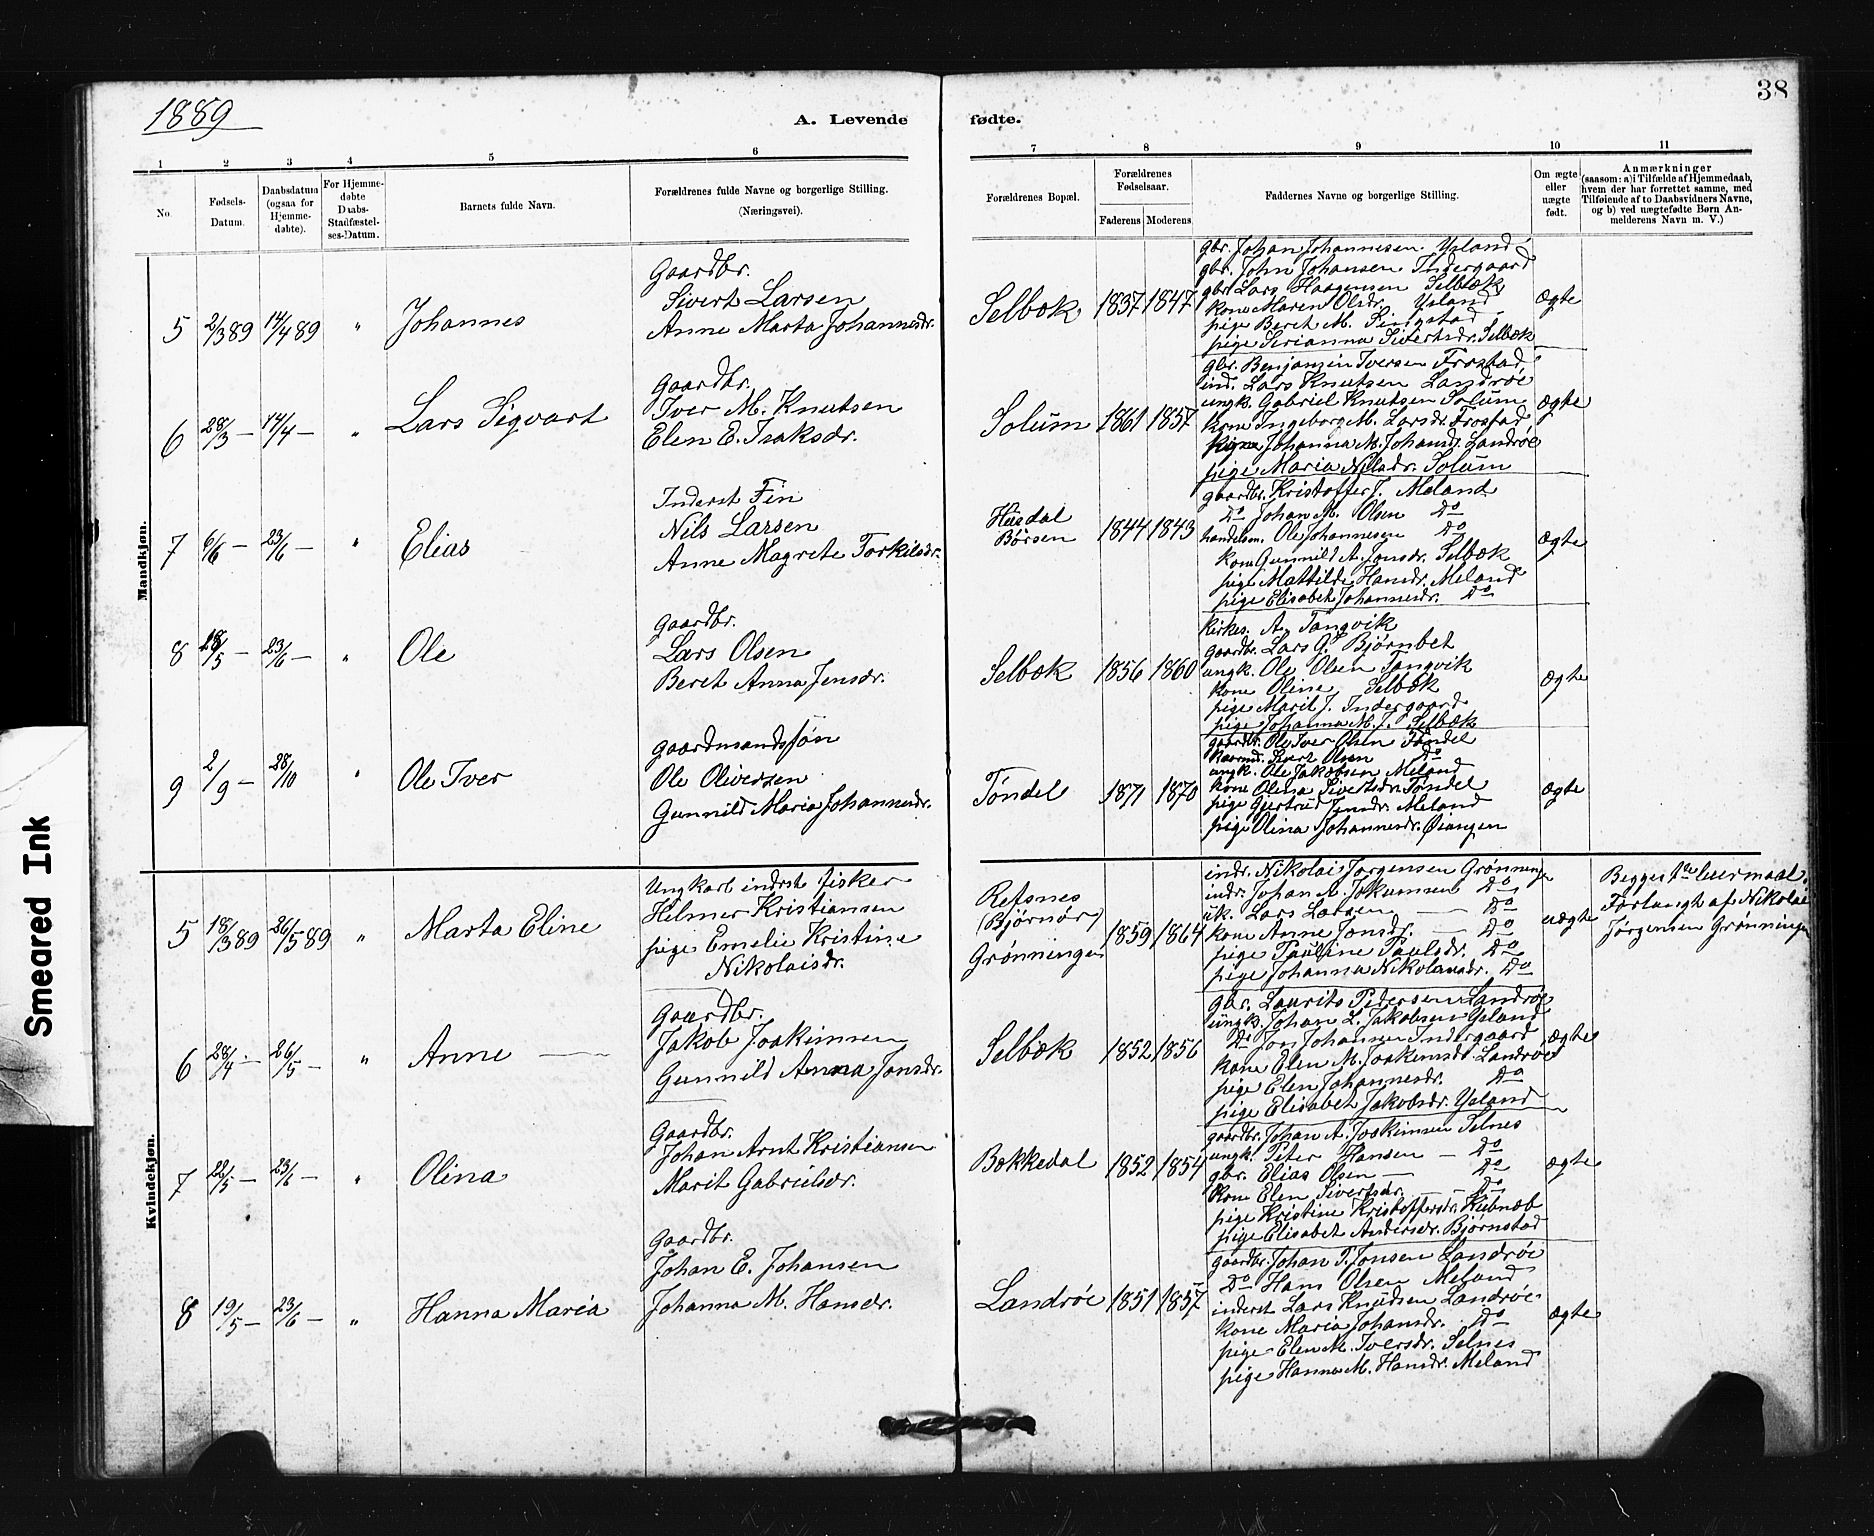 1889
A. Levende fødte.
38
1 2 3 4 5 6 7 8 9 10 11
No.
Fødsels-
Datum.
Daabsdatum
(ogsaa for
Hjemme-
døbte).
For Hjemme-
døbte
Daabs-
Stadfæstel-
ses-Datum.
Barnets fulde Navn.
Forældrenes fulde Navne og borgerlige Stilling.
(Næringsvei).
Forældrenes Bopæl.
Forældrenes
Fødselsaar.
Faderens Moderens
Faddernes Navne og borgerlige Stilling.
Om ægte
eller
uægte
født.
Anmærkninger
(saasom: a) i Tilfælde af Hjemmedaab,
hvem der har forrettet samme, med
Tilføiende af to Daabsvidners Navne,
og b) ved uægtefødte Børn An-
melderens Navn m. V.)
Mandkjøn.
5 2/3 89 14/4 89 " Johannes
Gaardbr.
Sivert Larsen
Anne Marta Johannesdr.
Selbæk 1837 1847
gbr. Johan Johannesen Ysland
gbr. John Johansen Indergaard
gbr. Lars Haagensen Selbæk
kone Maren Olsdr. Ysland
pige Beret M. Singstad
pige Serianna Sivertsdr. Selbæk
ægte
6 28/3 – 14/4 – " Lars Sigvart
Gaardbr.
Iver M. Knutsen
Elen E. Isaksdr.
Solum 1861 1857
gbr. Benjamin Iversen Frostad
ind. Lars Knutsen Landrøe
ungk. Gabriel Knutsen Solum
kone Ingeborg M. Larsdr. Frostad
Johanna M. Johansd. Landrøe
pige Maria Nilsdr. Solum
ægte
7 6/6 – 23/6 – " Elias
Inderst Fin
Nils Larsen
Anne Magrete Torkilsdr.
Husdal
Børsen
1844 1843
gaardbr. Kristoffer J. Meland
Do Johan M. Olsen Do
handelsm. Ole Johannesen Do
kone Gunnild A. Jonsdr. Selbæk
pige Mathilde Hansdr. Meland
pige Elisabet Johannesdr. Do
ægte
8 18/5 – 23/6 – " Ole
Gaardbr.
Lars Olsen
Beret Anna Jensdr.
Selbæk 1856 1860
kirkes. A. Tangvik
gaardbr. Lars G. Bjørnbet
ungk. Ole Olsen Tangvik
kone Oline Selbæk
pige Marit J. Indergaard
pige Johanna M. J. Selbæk
ægte
9 2/9 – 28/10 " Ole Iver
Gaardmandssøn
Ole Oliversen
Gunnild Maria Johannesdr.
Tøndel 1871 1870
gaardbr. Ole Iver Olsen Tøndel
Olsen Do
ungk. Ole Jakobsen Meland
kone Olena Sivertsdr. Tøndel
pige Gjertrud Jensdr. Meland
pige Olina Johannesdr. Øiangen
ægte
Kvindekjøn.
5 18/3 89 26/5 89 " Marta Eline
Ungkarl inderst fisker
Helmer Kristiansen
pige Emelie Kristine
Nikolaisdr.
Refsnes
(Bjørnør)
Grønningen
1859 1864
indr. Nikolai Jørgensen Grønningen
indr. Johan A. Jokumsen Do
uk. Lars Larsen – Do
kone Anne Jonsdr. – Do
pige Pauline Paulsdr. Do
pige Johanna Nikolaisdr. Do
uægte
Begges 1te leiermaal.
Forlangt af Nikolai
Jørgensen Grønningen
6 28/4 – 26/5 – " Anne
Gaardbr.
Jakob Joakimsen
Gunnild Anna Jonsdr.
Selbæk 1852 1856
gbr. Laurits Pedersen Landrøe
ungk. Johan L. Jakobsen Ysland
Do Jon Johansen Indergaard
kone Elen M. Joakimsdr. Landrøe
pige Elen Johannesdr. Do
pige Elisabet Jakobsdr. Ysland
ægte
7 22/5 – 23/6 – " Olina
Gaardbr.
Johan Arnt Kristiansen
Marit Gabrielsdr.
Bækkedal 1852 1854
gaardbr. Johan A. Joakimsen Selnes
ungk. Peter Hansen – Do
gbr. Elias Olsen – Do
kone Elen Sivertsdr. – Do
pige Kristine Kristoffersdr. Kubnæb
pige Elisabet Andersdr. Bjørnstad
ægte
8 19/5 – 23/6 – " Hanna Maria
Gaardbr.
Johan E. Johansen
Johanna M. Hansdr.
Landrøe 1851 1857
gaardbr. Johan P. Jonsen Landrøe
Do Hans Olsen Meland
inderst Lars Knudsen Landrøe
kone Maria Johansdr. Do
pige Elen M. Iversdr. Selnes
pige Hanna M. Hansdr. Meland
ægte
Smeared Ink